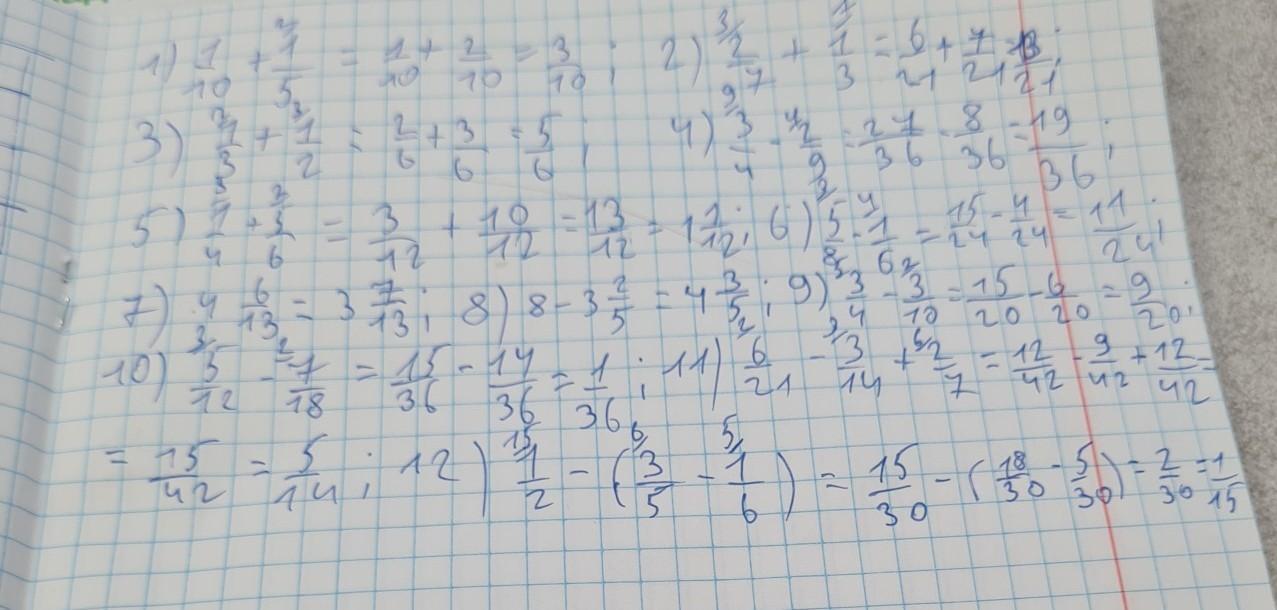 1) 1/10 + 2/1/5 = 1/10 + 2/10 = 3/10; 2) 3/2/7 + 7/1/3 = 6/21 + 7/21 = 13/21;
3) 2/1/3 + 3/1/2 = 2/6 + 3/6 = 5/6; 4) 9/3/4 - 4/2/9 = 27/36 - 8/36 = 19/36;
5) 3/1/4 + 2/5/6 = 3/12 + 10/12 = 13/12 = 1 1/12; 6) 3/5/8 - 4/1/6 = 15/24 - 4/24 = 11/24;
7) 4 6/13 = 3 7/13; 8) 8 - 3 2/5 = 4 3/5; 9) 5/3/4 - 2/3/10 = 15/20 - 6/20 = 9/20;
10) 3/5/12 - 2/7/18 = 15/36 - 14/36 = 1/36; 11) 2/6/21 - 3/3/14 + 6/2/7 = 12/42 - 9/42 + 12/42 =
= 15/42 = 5/14; 12) 15/1/2 - (6/3/5 - 5/1/6) = 15/30 - (18/30 - 5/30) = 2/30 = 1/15